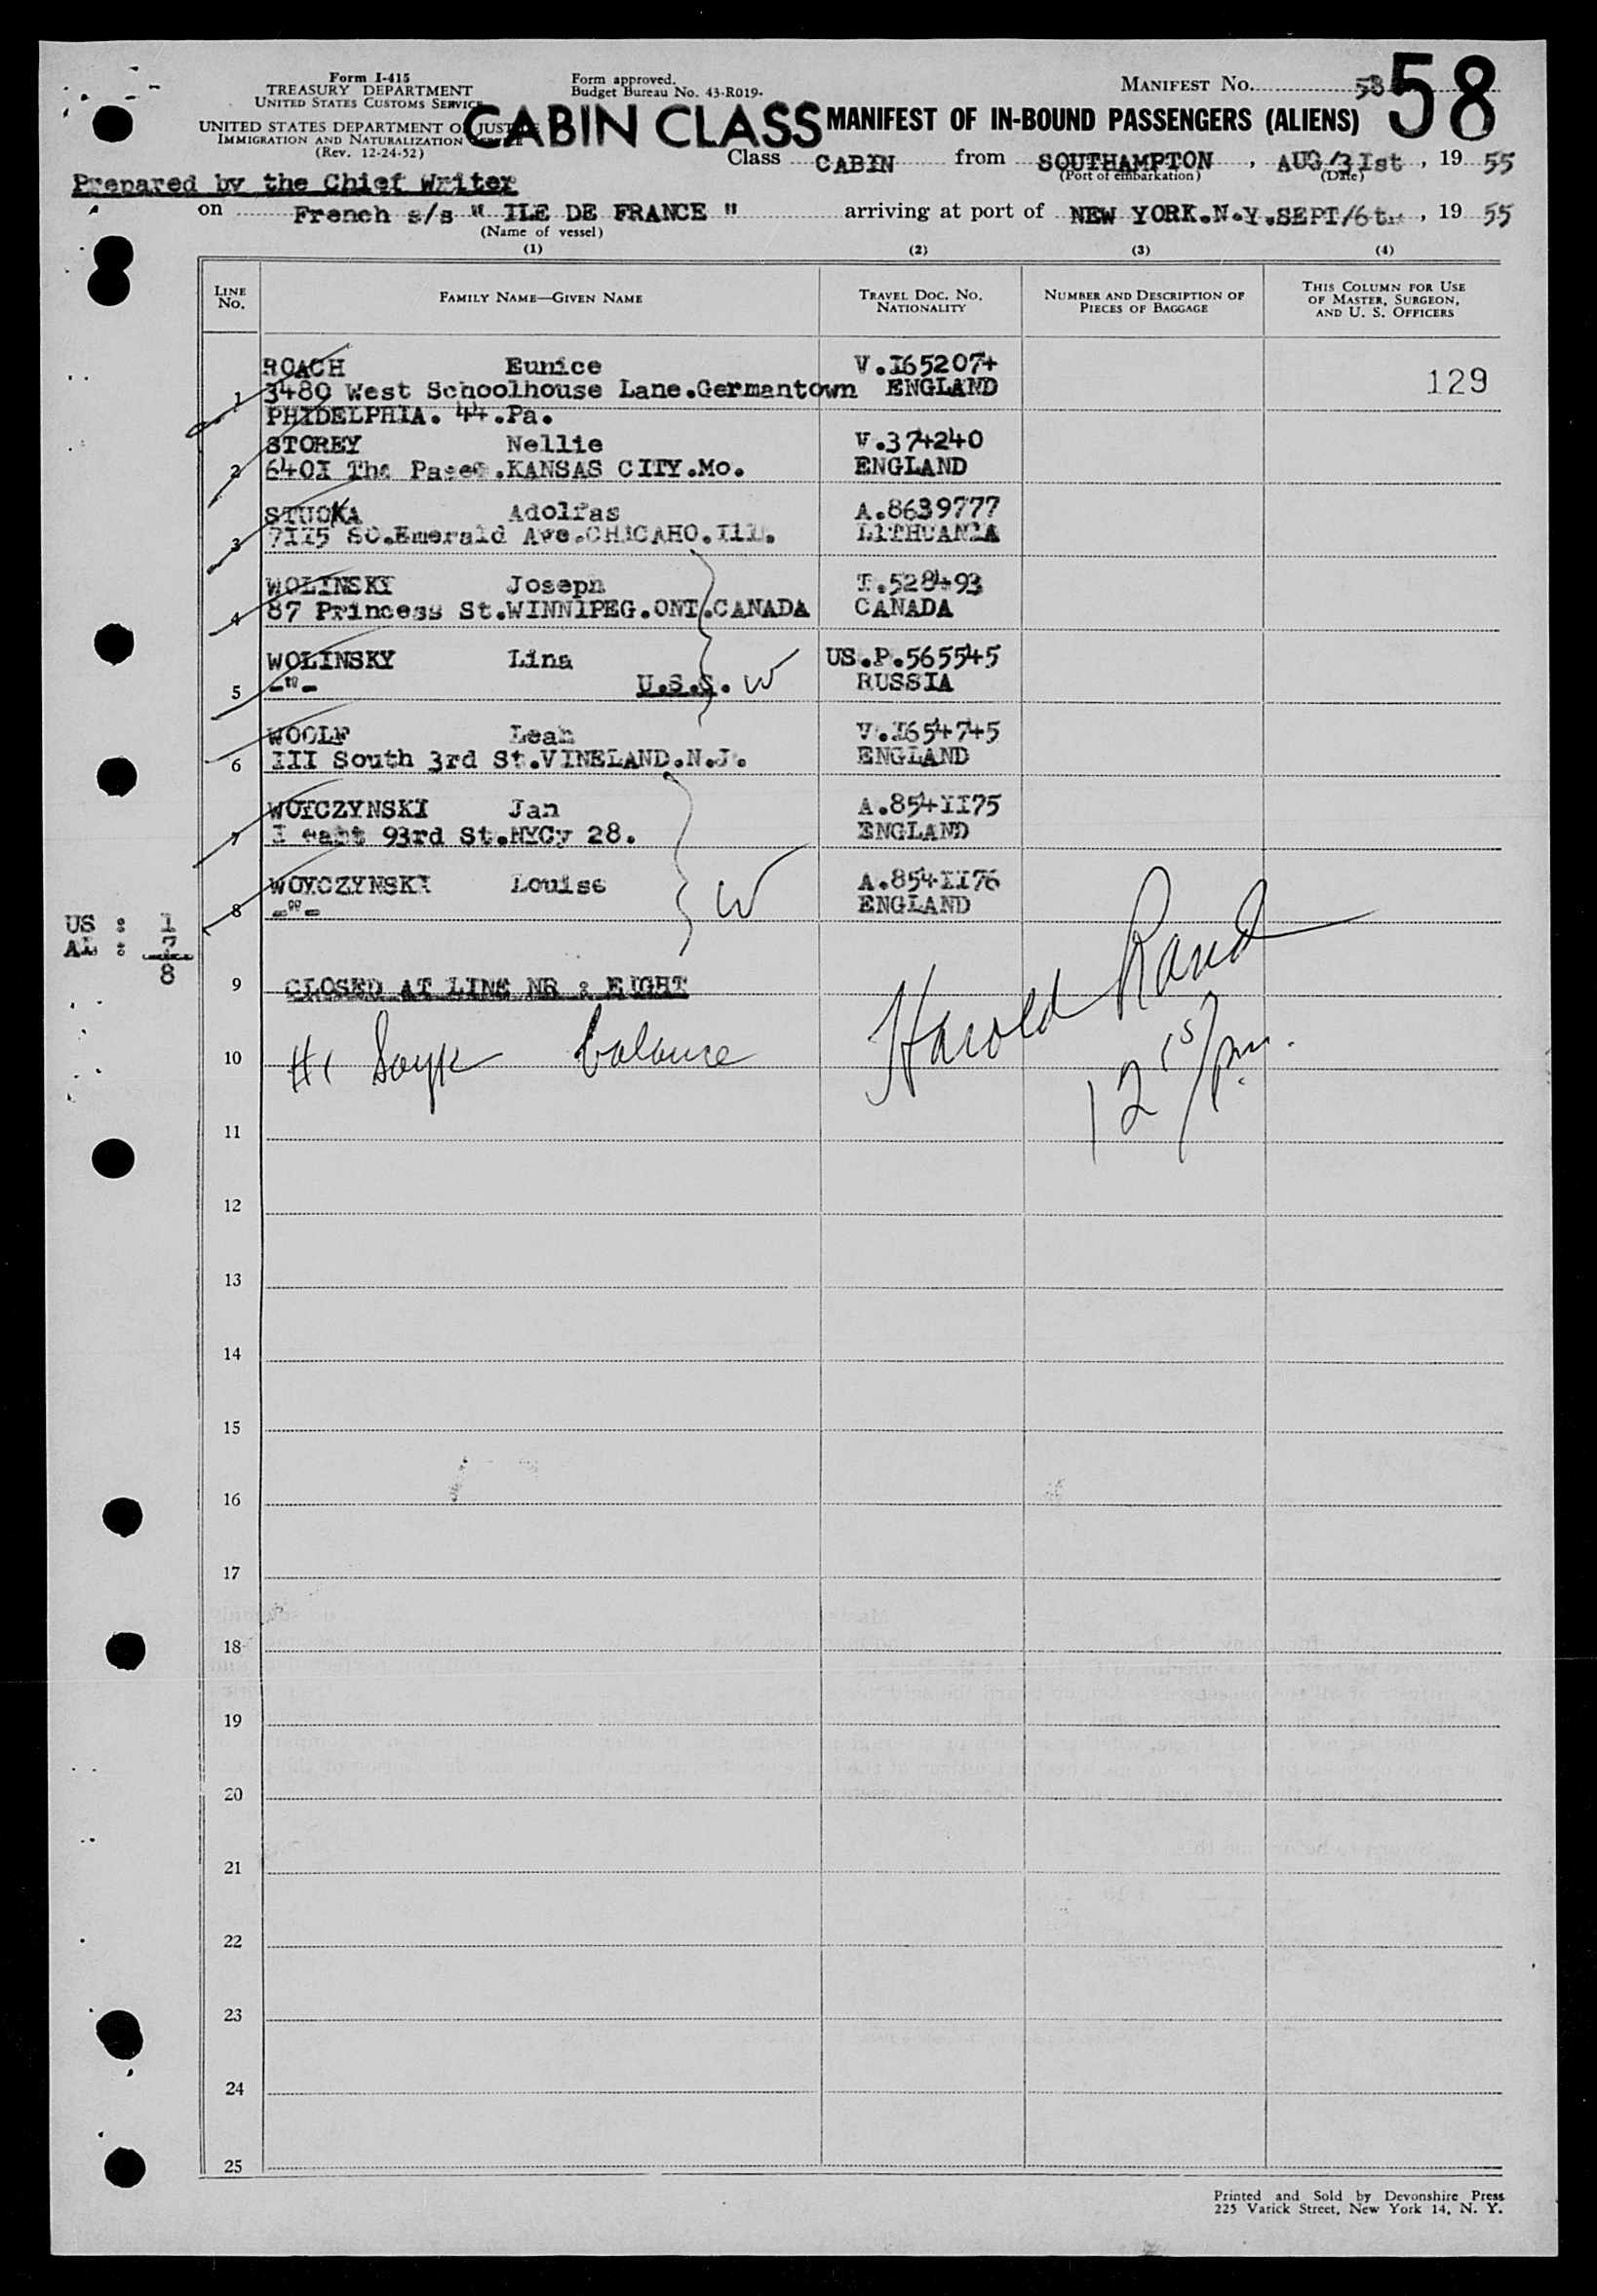 Form I-415
TREASURY DEPARTMENT
UNITED STATES CUSTOMS SERVICE
UNITED STATES DEPARTMENT OF JUSTICE
IMMIGRATION AND NATURALIZATION SERVICE
(Rev. 12-24-52)
Form approved.
Budget Bureau No. 43-R019.
CABIN CLASS
MANIFEST NO. 58
58
MANIFEST OF IN-BOUND PASSENGERS (ALIENS)
Class CABIN from SOUTHAMPTON, AUG/3Ist, 19 55
(Port of embarkation) (Date)
Prepared by the Chief Writer
on French s/s " ILE DE FRANCE " arriving at port of NEW YORK.N.Y.SEPT/6th, 19 55
(Name of vessel)
(1) (2) (3) (4)
LINE NO. FAMILY NAME—GIVEN NAME TRAVEL DOC. NO. NATIONALITY NUMBER AND DESCRIPTION OF PIECES OF BAGGAGE THIS COLUMN FOR USE OF MASTER, SURGEON, AND U. S. OFFICERS
ROACH Eunice V.I652074
1 3480 West Schoolhouse Lane.Germantown ENGLAND 129
PHIDELPHIA. 44.Pa.
STOREY Nellie V.374240
2 640I The Paseo.KANSAS CITY.Mo. ENGLAND
STUOKA Adolfas A.8639777
3 7II5 SO.Emerald Ave.CHICAHO.Ill. LITHUANIA
WOLINSKY Joseph T.528493
4 87 Princess St.WINNIPEG.ONT.CANADA CANADA
WOLINSKY Lina US.P.565545
5 -"- U.S.S. W RUSSIA
WOOLF Leah V.I654745
6 III South 3rd St.VINELAND.N.J. ENGLAND
WOYCZYNSKI Jan A.854II75
7 I east 93rd St.NYCy 28. ENGLAND
WOYCZYNSKI Louise A.854II76
8 -"- W ENGLAND
US : 1
AL : 7
8
9 CLOSED AT LINE NR : EIGHT
Harold Rand
10 balance
12 15/pm.
11
12
13
14
15
16
17
18
19
20
21
22
23
24
25
Printed and Sold by Devonshire Press
225 Varick Street, New York 14, N. Y.